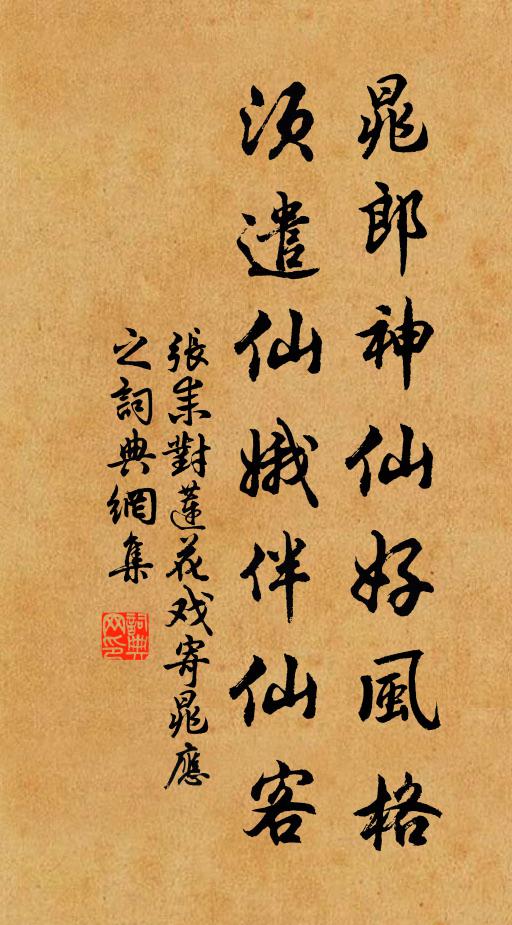 晁郎神仙好風格
須遣仙娥伴仙客
張耒對蓮花戏寄晁應
之詞典網集
詞典
网印